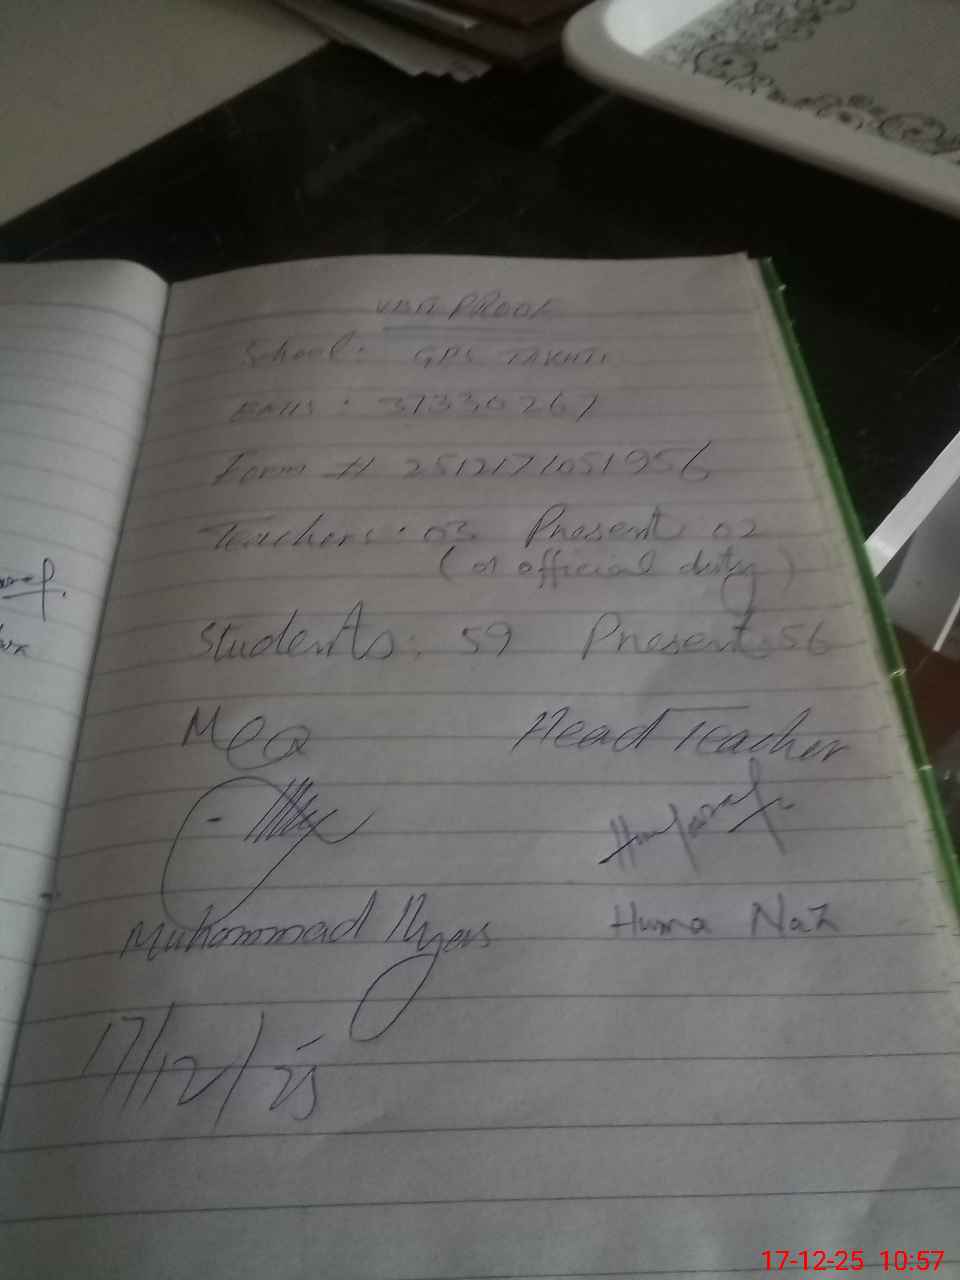 PROOF
School: GPS TAKHTI
EMIS: 37330267
Form # 2512171051956
Teachers: 03 Present 02
(01 official duty)
Students: 59 Present: 56
Head Teacher
Muhammad Ilyas
Huma Naz
17/12/25
17-12-25 10:57